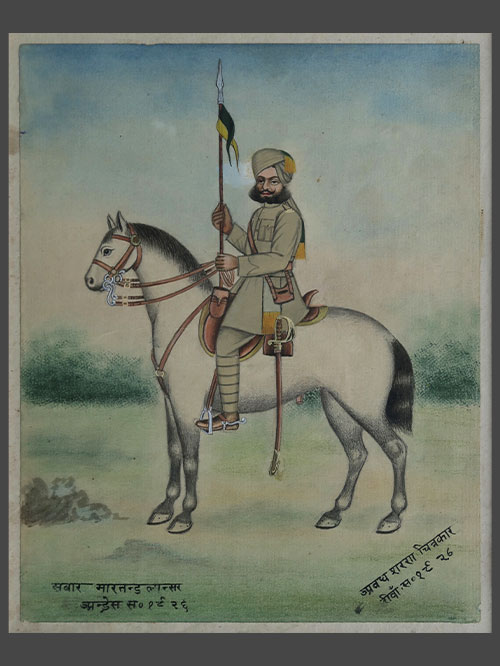 सवार मारतन्ड लान्सर
अन्ड्रेस स० १९ २६
अवध शरण चित्रकार
रीवाँ स० १९ २६